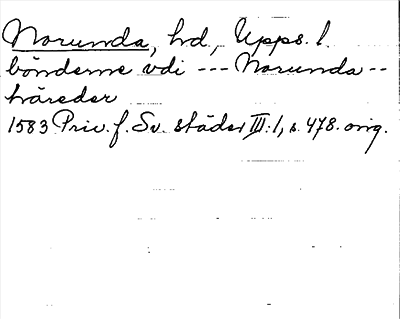 Norunda, hd, Upps. l.
bönderne vdi --- Norunda --
häreder
1583 Priv. f. Sv. städer III:1, s. 478. orig.